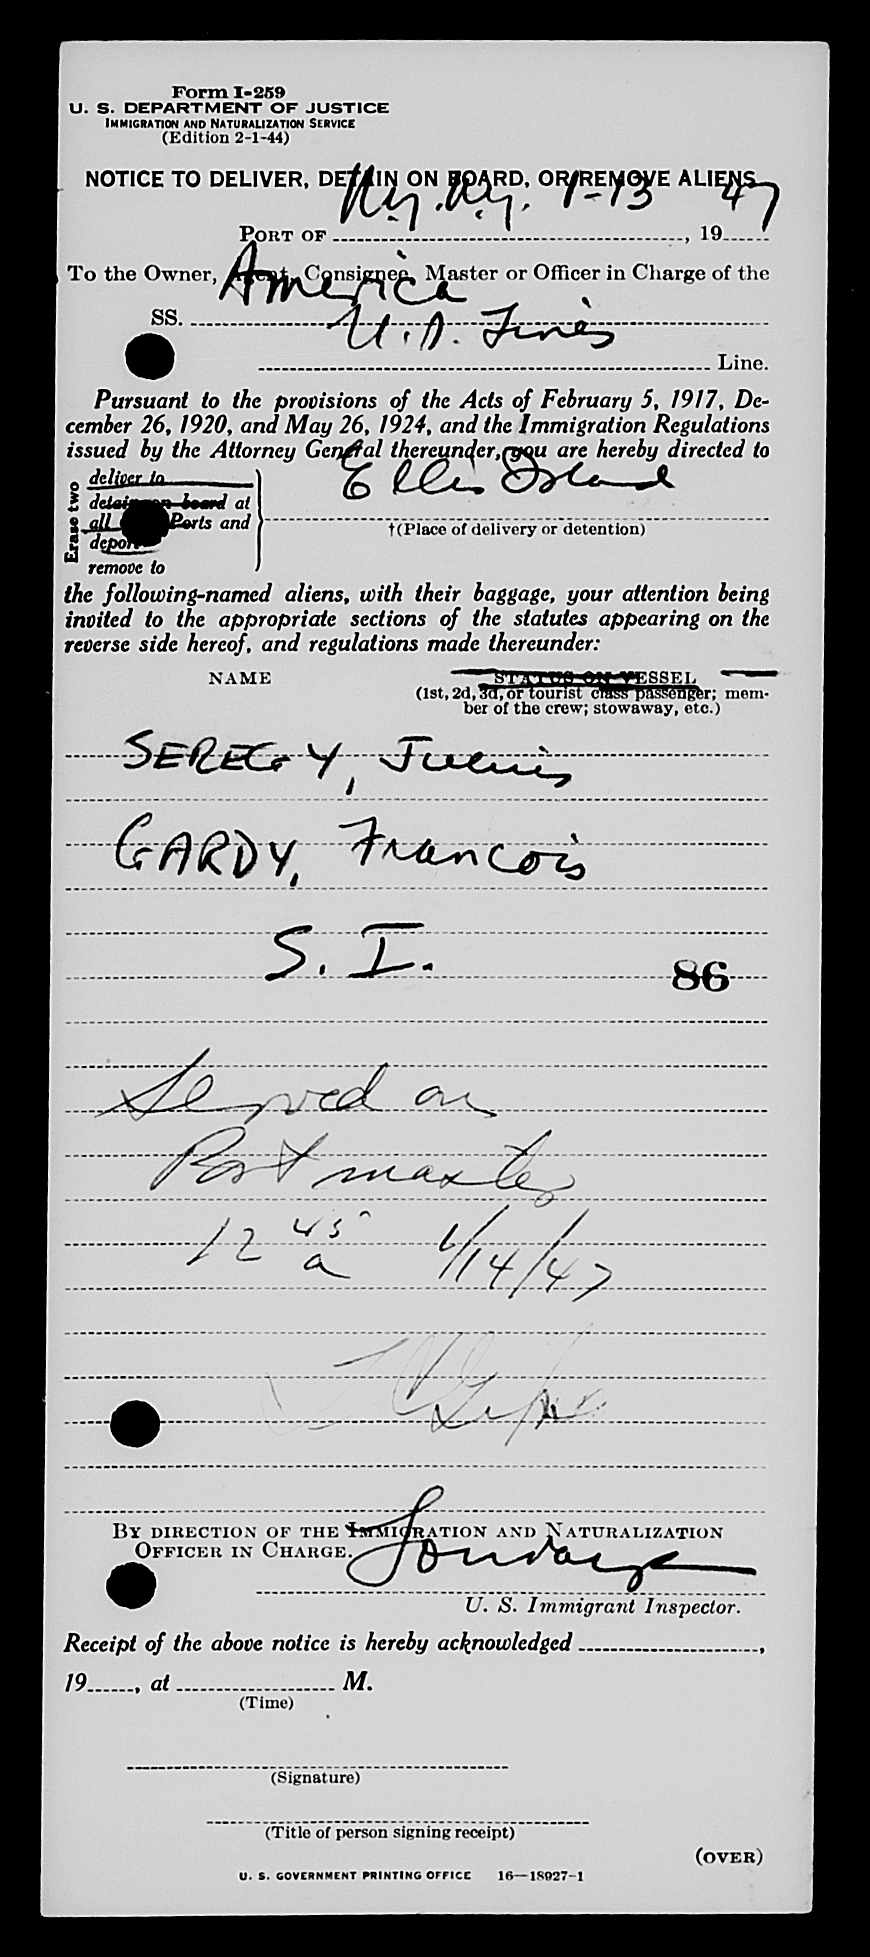 Form I-259
U. S. DEPARTMENT OF JUSTICE
IMMIGRATION AND NATURALIZATION SERVICE
(Edition 2-1-44)
NOTICE TO DELIVER, DETAIN ON BOARD, OR REMOVE ALIENS
PORT OF N.Y. N.Y. 1-13, 1947
To the Owner, Agent, Consignee, Master or Officer in Charge of the
SS. America
U.S. Lines Line.
Pursuant to the provisions of the Acts of February 5, 1917, De-
cember 26, 1920, and May 26, 1924, and the Immigration Regulations
issued by the Attorney General thereunder, you are hereby directed to
Erase two
deliver to
detain on board at
all Ports and
deport
remove to
Ellis Island
†(Place of delivery or detention)
the following-named aliens, with their baggage, your attention being
invited to the appropriate sections of the statutes appearing on the
reverse side hereof, and regulations made thereunder:
NAME STATUS ON VESSEL
(1st, 2d, 3d, or tourist class passenger; mem-
ber of the crew; stowaway, etc.)
SEREGY, Julius
GARDY, Francois
S. I.
86
Served on
Port master
12 45 a 1/14/47
BY DIRECTION OF THE IMMIGRATION AND NATURALIZATION
OFFICER IN CHARGE.
U. S. Immigrant Inspector.
Receipt of the above notice is hereby acknowledged ,
19 , at M.
(Time)
(Signature)
(Title of person signing receipt)
(OVER)
U. S. GOVERNMENT PRINTING OFFICE 16—18927-1